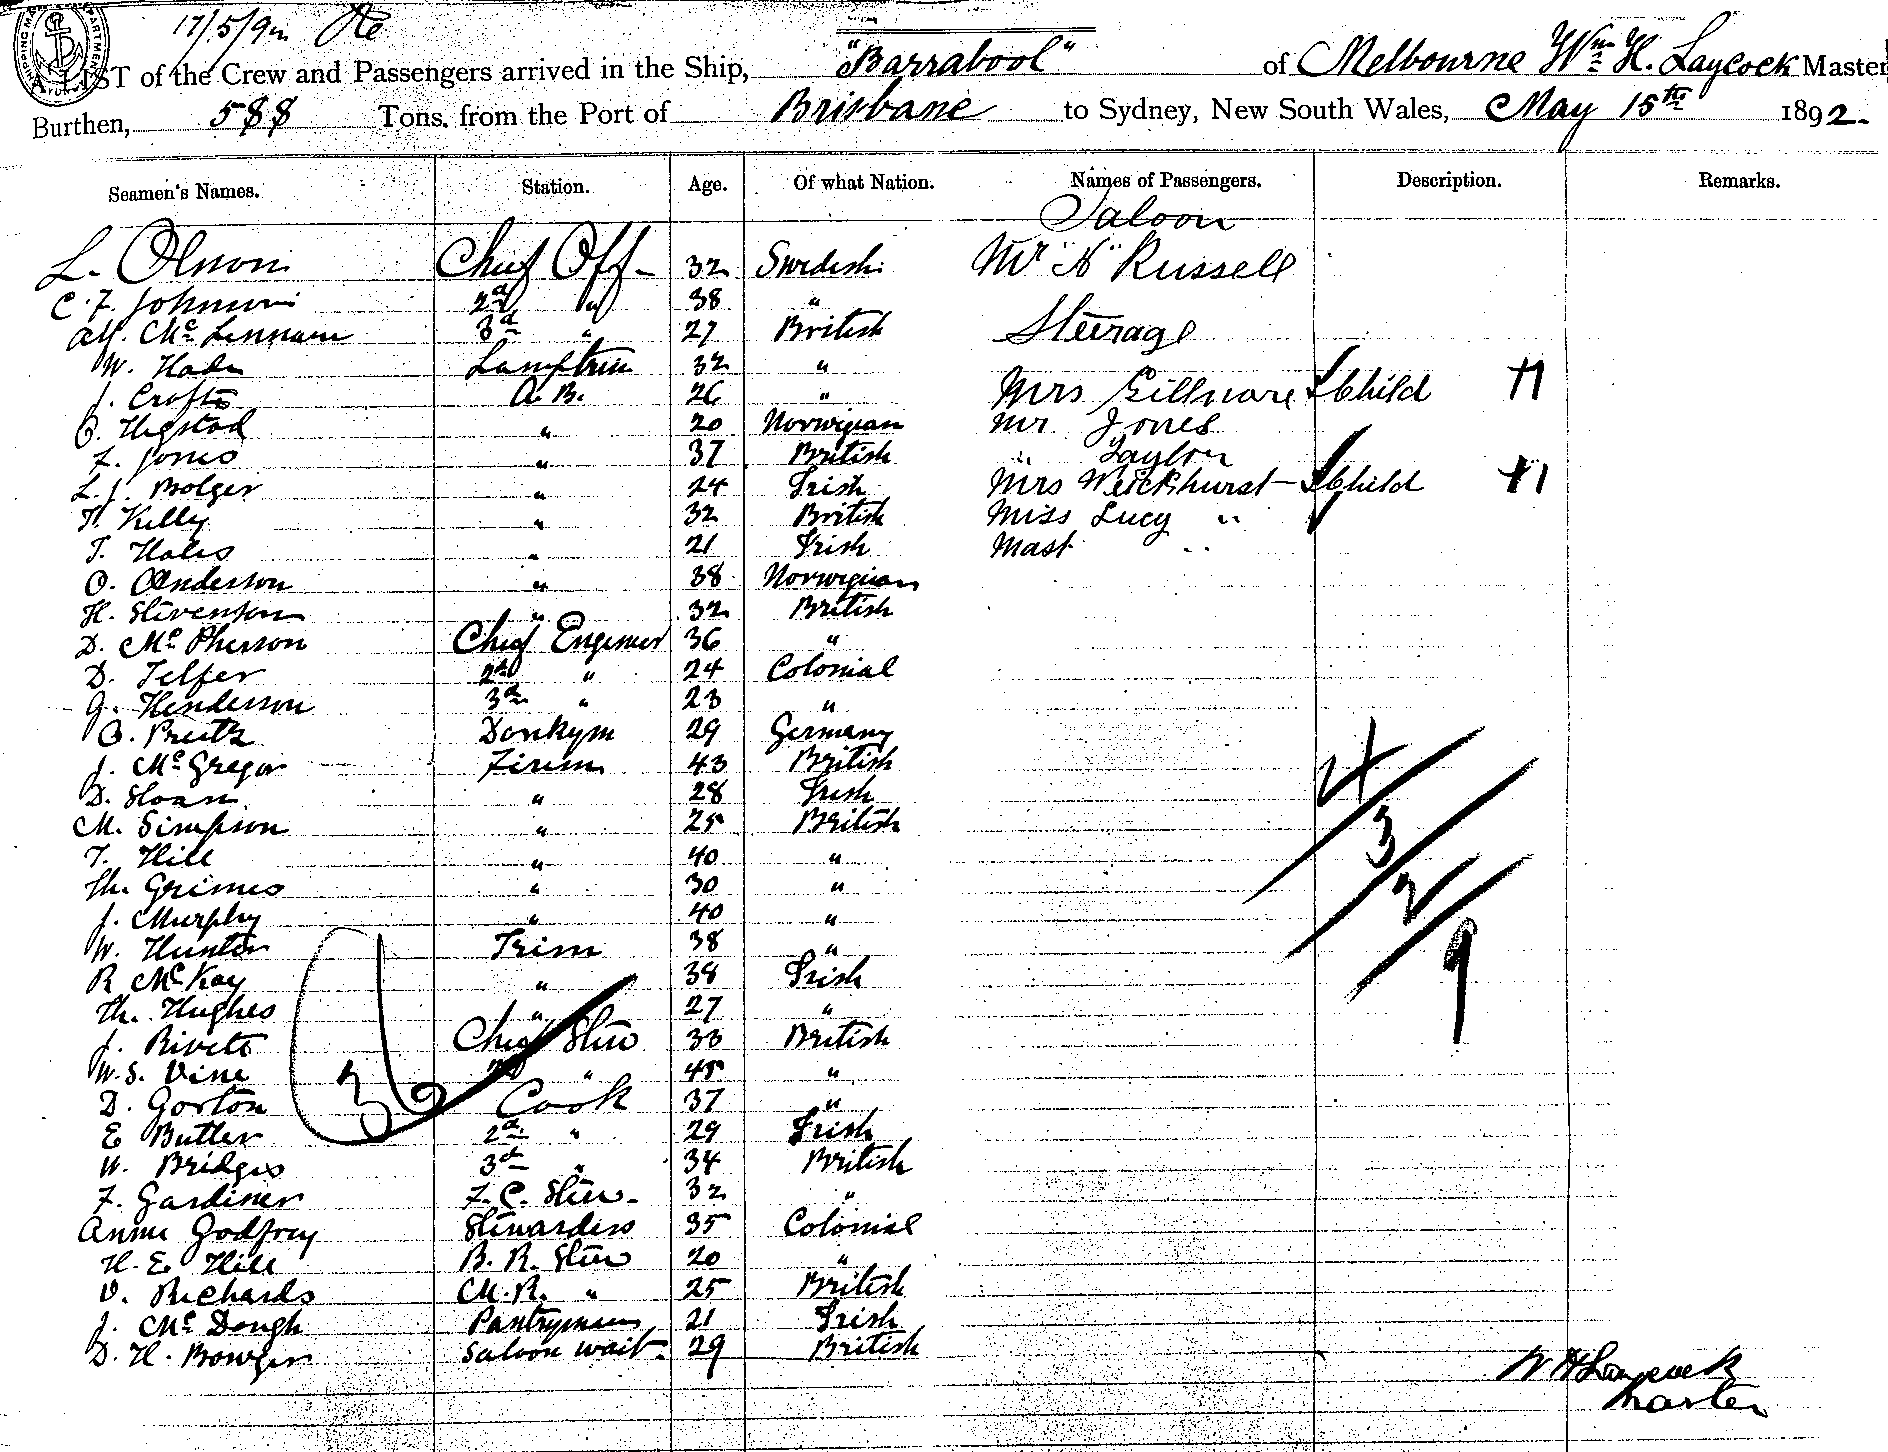 17/5/92
A LIST of the Crew and Passengers arrived in the Ship, "Barrabool" of Melbourne Wm H. Laycock Master
Burthen, 588 Tons, from the Port of Brisbane to Sydney, New South Wales, May 15th 1892.
Seamen's Names. Station. Age. Of what Nation. Names of Passengers. Description. Remarks.
Saloon
L. Olsson Chief Off- 32 Swedish Mr "H" Russell
C. F. Johnson 2d " 38 "
Alf. McLennan 3d " 27 British Steerage
W. Lamptrim 32 "
J. Crofts A.B. 26 " Mrs Gillmore & Child +1
O. Hegstad " 20 Norwegian Mr Jones
F. Jones " 37 British " Taylor
L. J. Bolger " 24 Irish Mrs Weickhurst - & Child +1
T. Kelly " 32 British Miss Lucy "
T. Hales " 21 Irish Mast "
O. Anderson " 38 Norwegian
H. Stevenson " 32 British
D. McPherson Chief Engineer 36 "
D. Telfer 2d " 24 Colonial
G. Henderson 3d " 23 "
O. Preitz Donkym 29 Germany
J. McGregor Firem 43 British
D. Sloan " 28 Irish
M. Simpson " 25 British
T. Hill " 40 "
Th. Grimes " 30 "
J. Murphy " 40 "
W. Hunter Trim 38 "
R McKay " 38 Irish
Th. Hughes " 27 "
J. Rivett Chief Stew 33 British
W. S. Vine 2d " 45 "
D. Gorton Cook 37 "
E Butler 2d " 29 Irish
W. Bridges 3d " 34 British
F. Gardiner F. C. Stew. 32 "
Annie Godfrey Stewardess 35 Colonial
H. E. Hill B. R. Stew 20 "
V. Richards M. R. " 25 British
J. McDough Pantryman 21 Irish
D. H. Bowyer Saloon wait. 29 British
4/3/2/9
36
W H Laycock
Master